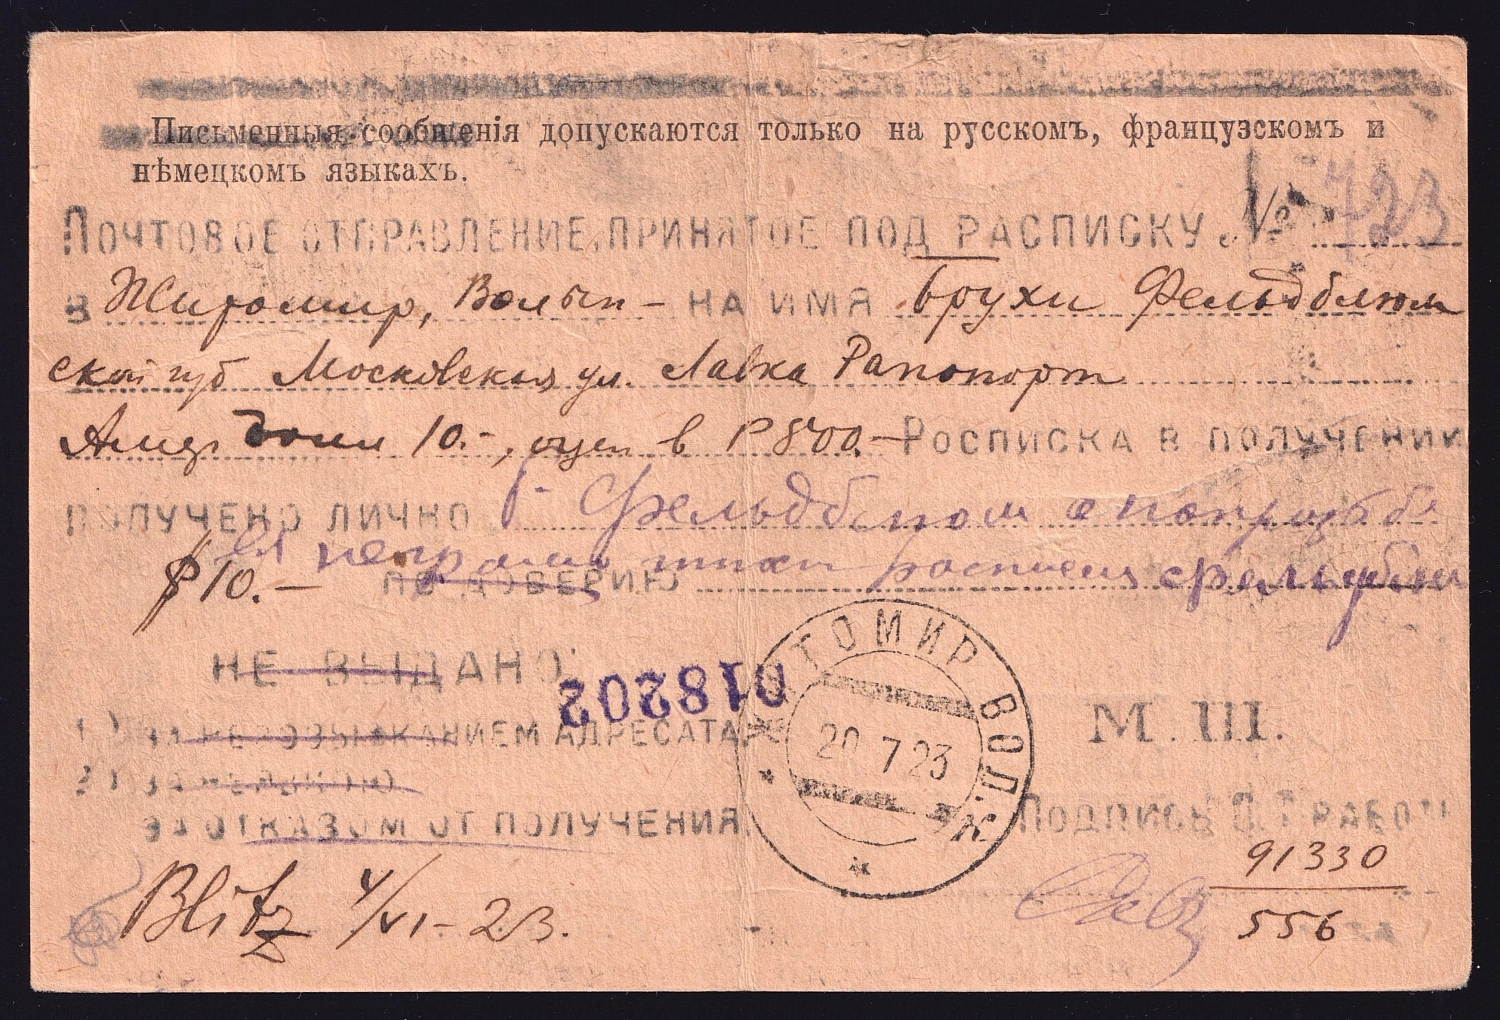 Письменныя сообщенія допускаются только на русскомъ, французскомъ и
нѣмецкомъ языкахъ.
ПОЧТОВОЕ ОТПРАВЛЕНИЕ, ПРИНЯТОЕ ПОД РАСПИСКУ № 723
В Житомир, Волын- НА ИМЯ Брухи Фельдблюм
ской губ Московская ул. Лавка Рапопорт
Амер долл 10.-, оцен в Р 800.- РОСПИСКА В ПОЛУЧЕНИИ
ПОЛУЧЕНО ЛИЧНО Фельдблюм
$10.- ПО ДОВЕРИЮ
НЕ ВЫДАНО:
018202
1) ЗА НЕРОЗЫСКАНИЕМ АДРЕСАТА
ЗА ОТКАЗОМ ОТ ПОЛУЧЕНИЯ.
ЖИТОМИР ВОЛ.
20 7 23
М. П.
ПОДПИСЬ П. Т РАБОТ
91330
556
Blitz 4/VI-23.